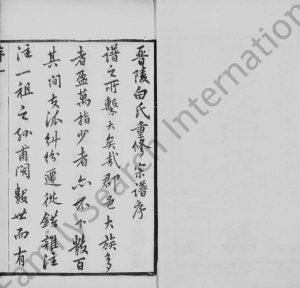 晋陵白氏重修宗譜序
譜之所繫大矣哉郡邑大族多
者盈萬指少者亦不下數百
其间支派糾紛遷徙錯雜注
注一祖之孙甫阅数世而有
序一
FamilySearch International